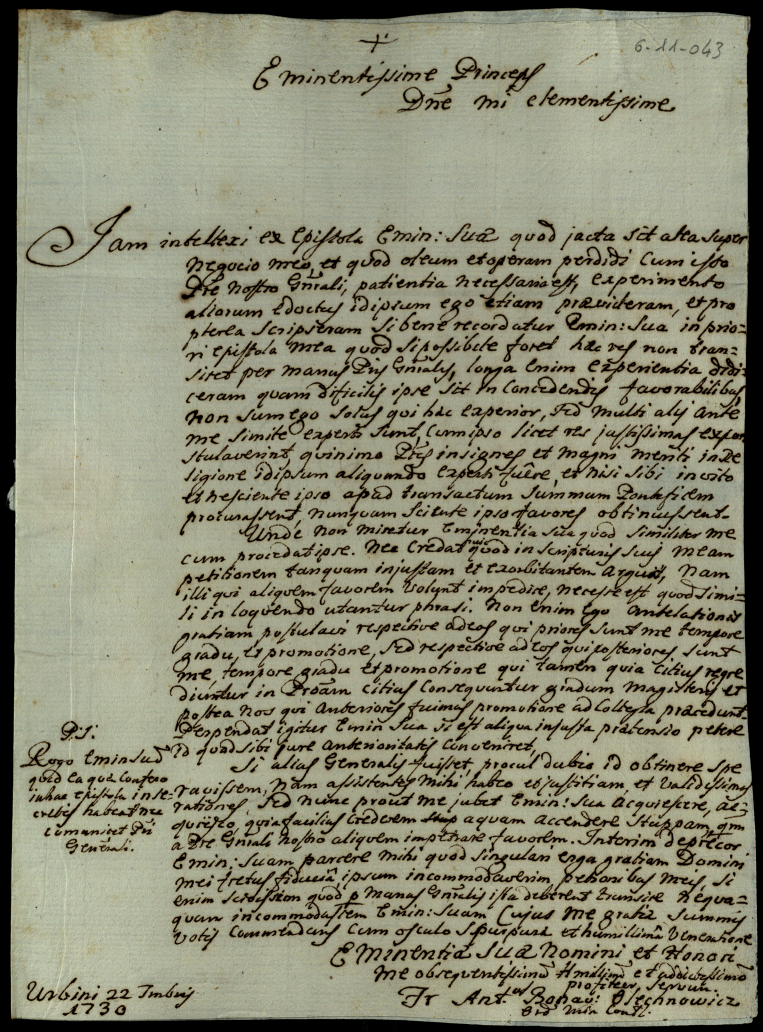 6-11-043
+
Eminentissime Princeps
Dñe mi clementissime
Jam intellexi ex Epistola Emin: Suæ quod jacta sit alea super
Negocio meo, et quod oleum et operam perdidi Cum isto
Pře nostro Gn̄rali, patientia necessaria est, experimento
aliorum edoctus idipsum ego etiam prævideram, et pro
pterea scripseram si bene recordatur Emin: Sua in prio=
ri epistola mea quod si possibile foret hæc res non tran=
siret per manus Pr̄is Gn̄ralis, longa enim experientia didi=
ceram quam dificilis ipse sit in Concedendis favorabilibus,
Non sum ego solus qui hæc experior, sed multi alij ante
me simile experti sunt, Cum ipso licet res justissimas expo
stulaverint, quinimo Pr̄es insignes et magni meriti in Re
ligione idipsum aliquando experti fuêre, et nisi sibi invito
et nesciente ipso apud transactum Summum Pontificem
procurassent, nunquam sciente ipso favores obtinuissent.
Unde non miretur Eminentia sua quod similiter me
cum procedat ipse. Nec Credat quod in scripturis suis meam
petitionem tanquam injustam et exorbitantem arguit, Nam
illi qui aliquem favorem volunt impedire, necesse est quod simi=
li in loquendo utantur phrasi. Non enim ego antelationis
gratiam postulavi respective ad eos qui priores sunt me tempore
gradu, et promotione, sed respective ad eos qui posteriores sunt
me, tempore gradu et promotione qui tamen quia citius regre
diuntur in Proam citius Consequuntur gradum magisterij et
postea nos qui anteriores fuimus promotione ad Collegia præcedunt.
Perpendat igitur Emin Sua si est aliqua injusta prætensio petere
id quod sibi jure anterioritatis Conveniret,
Si alias Generalis fuisset, procul dubio id obtinere spe
ravissem, nam assistentes mihi habeo et justitiam, et validissimas
rationes, sed nunc prout me jubet Emin: Sua Acquiescere, ac=
quiesco, quia facilius Crederem aquam accendere stuppam, qm
a Pre Gn̄rali nostro aliquem impetrare favorem. Interim deprecor
Emin: Suam parcere mihi quod singulari erga gratiam Domini
mei fretus fiduciâ ipsum incommodaverim, petitionibus meis, si
enim scivissem quod p manus Gn̄ralis ista deberent transire nequa=
quam incommodassem Emin: Suam Cujus me gratiæ summis
votis Commendans Cum osculo S. purpuræ et humillimâ Veneratione
Eminentiæ Suæ Nomini et Honori
me obsequentissimũ Humillimũ et addictissimũ
profiteor, servum.
Fr Antus Bonav: Olechnowicz
Ord Min Conv̄l.
P.S.
Rogo Emin Suā
quod ea quæ Confero
in hac epistola in se=
cretis habeat nec
comunicet Pri
Generali.
Urbini 22 Imbris
1730